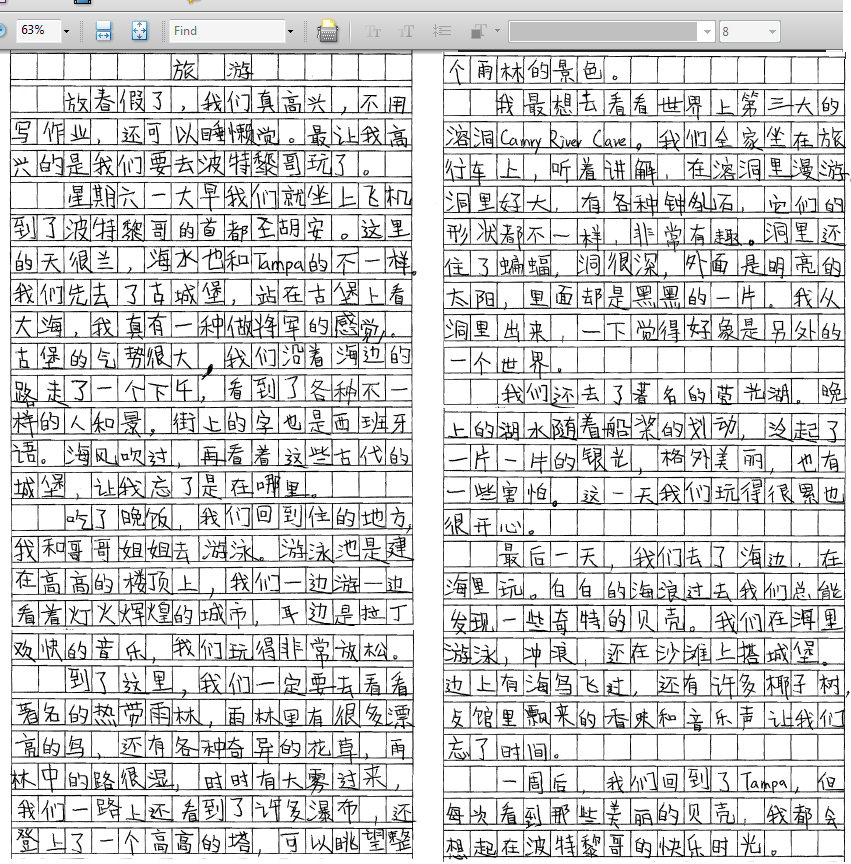 63%
Find
8
旅 游
放春假了，我们真高兴，不用
写作业，还可以睡懒觉。最让我高
兴的是我们要去波特黎哥玩了。
星期六一大早我们就坐上飞机
到了波特黎哥的首都圣胡安。这里
的天很兰，海水也和Tampa的不一样。
我们先去了古城堡，站在古堡上看
大海，我真有一种做将军的感觉。
古堡的气势很大，我们沿着海边的
路走了一个下午，看到了各种不一
样的人和景。街上的字也是西班牙
语。海风吹过，再看着这些古代的
城堡，让我忘了是在哪里。
吃了晚饭，我们回到住的地方，
我和哥哥姐姐去游泳。游泳池是建
在高高的楼顶上，我们一边游一边
看着灯火辉煌的城市，耳边是拉丁
欢快的音乐，我们玩得非常放松。
到了这里，我们一定要去看看
著名的热带雨林，雨林里有很多漂
亮的鸟，还有各种奇异的花草，雨
林中的路很湿，时时有大雾过来，
我们一路上还看到了许多瀑布，还
登上了一个高高的塔，可以眺望整
个雨林的景色。
我最想去看看世界上第三大的
溶洞Camry River Cave。我们全家坐在旅
行车上，听着讲解，在溶洞里漫游，
洞里好大，有各种钟乳石，它们的
形状都不一样，非常有趣。洞里还
住了蝙蝠，洞很深，外面是明亮的
太阳，里面却是黑黑的一片。我从
洞里出来，一下觉得好象是另外的
一个世界。
我们还去了著名的荧光湖。晚
上的湖水随着船桨的划动，泛起了
一片一片的银光，格外美丽，也有
一些害怕。这一天我们玩得很累也
很开心。
最后一天，我们去了海边，在
海里玩。白白的海浪过去我们总能
发现一些奇特的贝壳。我们在海里
游泳，冲浪，还在沙滩上搭城堡。
边上有海鸟飞过，还有许多椰子树，
饭馆里飘来的香味和音乐声让我们
忘了时间。
一周后，我们回到了Tampa，但
每次看到那些美丽的贝壳，我都会
想起在波特黎哥的快乐时光。